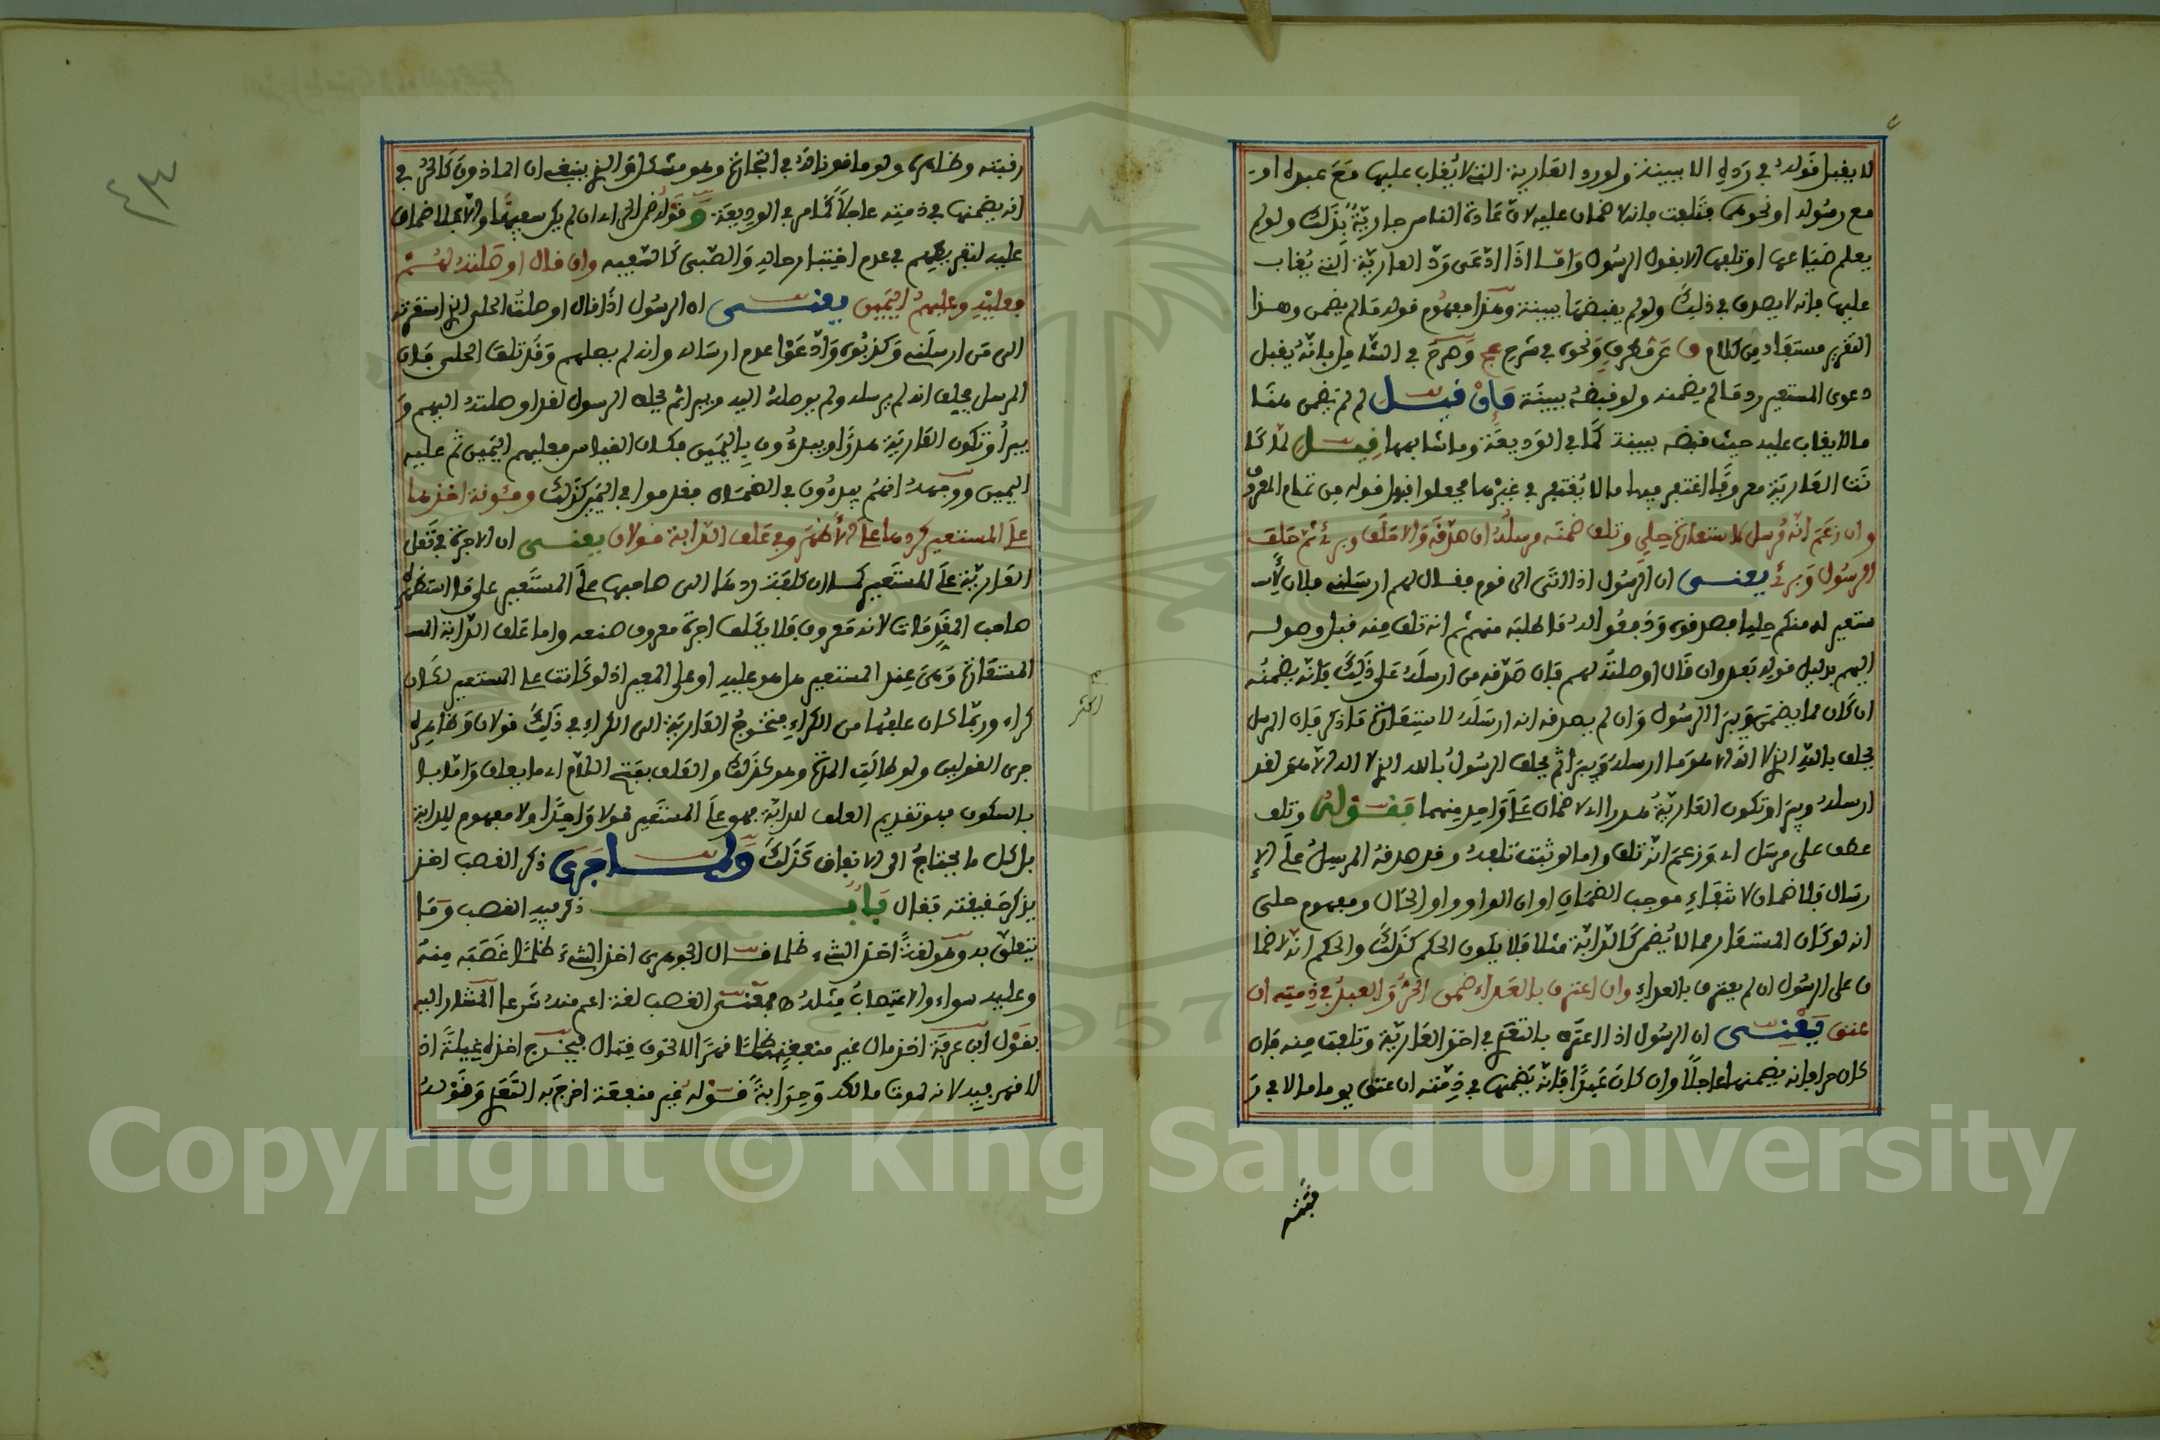 لا يقبل قوله في رده الا ببينة ولو رد العارية التي لا يغاب عليها مع عبده او
مع رسوله او نحوهما فتلفت فانه لا ضمان عليه لان عادة الناس جارية بذلك ولو لم
يعلم ضياعها او تلفها الا بقول الرسول واما اذا ادعى رد العارية التي يغاب
عليها فانه لا يصدق في ذلك ولو لم يقبضها ببينة وهذا مفهوم قوله ما لم يضمن وهذا
التقرير مستفاد من كلام ق عن مطرف ونحوه في شرح عج وصرح في الشامل بانه يقبل
دعوى المستعير رد ما لم يضمنه ولو قبضه ببينة فإن قيل لم لم يضمن هنا
ما لا يغاب عليه حيث قبضه ببينة كما في الوديعة وما شابهها قيل لما كا
نت العارية معروفا اغتفر فيها ما لا يغتفر في غيرها فجعلوا قبول قوله من تمام المعروف
وان زعم انه مرسل لاستعارة حلي وتلف ضمنه مرسله ان صدقه والا حلف وبرئ ثم حلف
الرسول وبرئ يعني ان الرسول اذا اتى الى قوم فقال لهم ارسلني فلان لأست
ستعير له منكم حليا فصدقوه ودفعوا له ما طلبه منهم ثم انه تلف منه قبل وصوله
اليهم بدليل قوله بعد وان قال اوصلته لهم فان صدقه من ارسله على ذلك فانه يضمنه
ان كان مما يضمن ويبرأ الرسول وان لم يصدقه انه ارسله لاستعارة ما ذكر فان المرسل
يحلف بالله الذي لا اله الا هو ما ارسله ويبرأ ثم يحلف الرسول بالله الذي لا اله الا هو لقد
ارسله ويبرأ وتكون العارية هدرا اي لا ضمان على واحد منهما فقوله وتلف
عطف على مرسل اي وزعم انه تلف واما لو ثبت تلفه وقد صدقه المرسل على الإ
رسال فلا ضمان لانتفاء موجب الضمان او ان الواو واو الحال ومفهوم حلي
انه لو كان المستعار مما لا يضمن كالدابة مثلا فلا يكون الحكم كذلك والحكم انه لا ضما
ن على الرسول ان لم يعترف بالعداء وان اعترف بالعداء ضمن الحر والعبد في ذمته ان
عتق يعني ان الرسول اذا اعترف بالتعدي في اخذ العارية وتلفت منه فان
كان حرا فانه يضمنها عاجلا وان كان عبدا فانه يضمنها في ذمته ان عتق يوما ما لا في ر
رقبته وظاهره ولو مأذونا له في التجارة وهو مشكل والذي ينبغي ان المأذون كالحر في
انه يضمنها في ذمته عاجلا كما مر في الوديعة وقوله ضمن الحر اي ان لم يكن سفيها والا فلا ضمان
عليه لتفريطهم في عدم اختبار حاله والصبي كالسفيه وان قال اوصلته لهم
فعليه وعليهم اليمين يعني ان الرسول اذا قال اوصلت الحلي الذي استعرته
الى من ارسلني وكذبوه وادعوا عدم ارساله وانه لم يصلهم وقد تلف الحلي فان
المرسل يحلف انه لم يرسله ولم يوصله اليه ويبرأ ثم يحلف الرسول لقد اوصلته اليهم و
يبرأ وتكون العارية هدرا ويبدءون باليمين فكان القياس فعليهم اليمين ثم عليه
اليمين ووجهه انهم يبدءون في الغرم فقدموا في اليمين كذلك ومئونة اخذها
على المستعير كردها على الأظهر وفي علف الدابة قولان يعني ان الاجرة في نقل
العارية على المستعير كما ان كلفة ردها الى صاحبها على المستعير على ما استظهره
صاحب المقدمات لانه معروف فلا يكلف اجرة معروف صنعه واما علف الدابة المست
المستعارة وهي عند المستعير هل هو عليه او على المعير اذ لو كانت على المستعير لكان
كراء وربما كان علفها من الكراء فتخرج العارية الى الكراء في ذلك قولان وظاهره
جرى القولين ولو طالت المدة وهو كذلك والعلف بفتح اللام اي ما يعلف واما با
بالسكون فهو تقديم العلف للدابة فهو على المستعير قولا واحدا ولا مفهوم للدابة
بل كل ما يحتاج الى الانفاق كذلك ولما جرى ذكر الغصب اخذ
يذكر حقيقته فقال باب ذكر فيه الغصب وما
يتعلق به وهو لغة اخذ الشيء ظلما قال الجوهري اخذ الشيء ظلما غصبه منه
وعليه سواء والاغتصاب مثله ط فمعنى الغصب لغة اعم منه شرعا المشار اليه
بقول ابن عرفة اخذ مال غير منفعة ظلما قهرا لا لخوف قتال فيخرج اخذه غيلة اذ
لا قهر فيه لانه لموت مالكه وحرابة قوله غير منفعة اخرج به التعدي وقوله
فتته